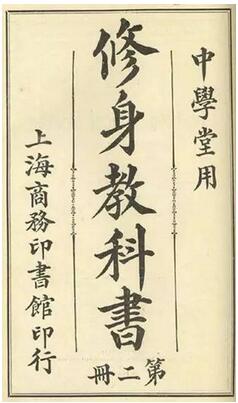 中學堂用
修身教科書
第二冊
上海商務印書館印行